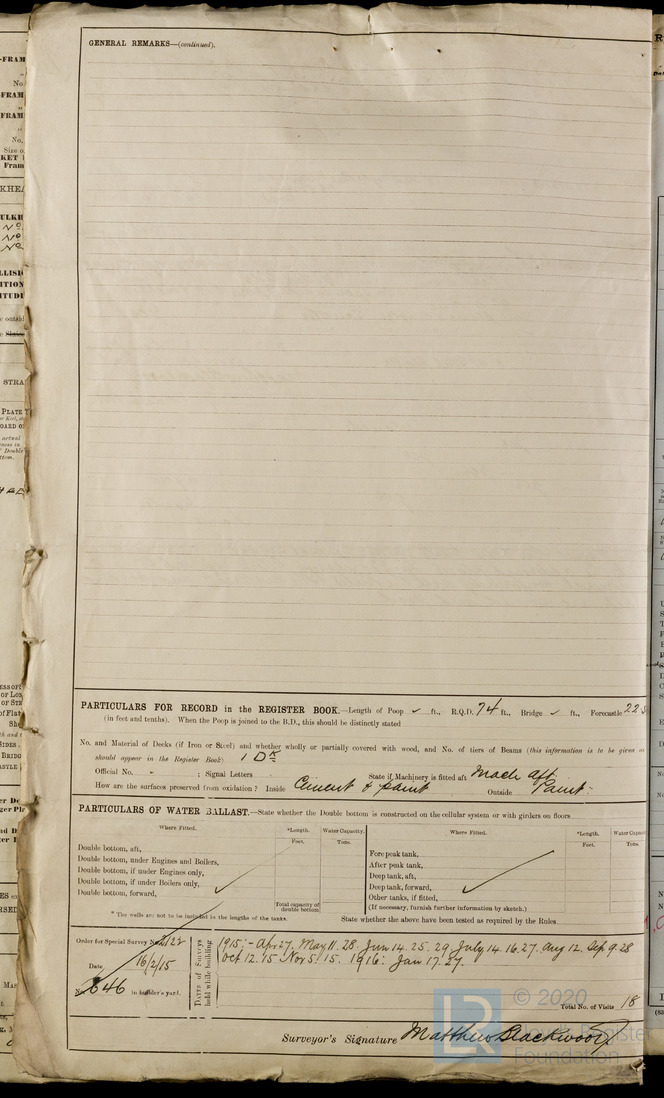 GENERAL REMARKS—(continued).
PARTICULARS FOR RECORD in the REGISTER BOOK.—Length of Poop ✓ ft., R.Q.D. 74 ft., Bridge ✓ ft., Forecastle 22.
(in feet and tenths). When the Poop is joined to the B.D., this should be distinctly stated
No. and Material of Decks (if Iron or Steel) and whether wholly or partially covered with wood, and No. of tiers of Beams (this information is to be given as
should appear in the Register Book) 1 Dk
Official No. ; Signal Letters State if Machinery is fitted aft Mach aft.
How are the surfaces preserved from oxidation? Inside Cement & paint Outside Paint
PARTICULARS OF WATER BALLAST.—State whether the Double bottom is constructed on the cellular system or with girders on floors
Where Fitted. *Length. Water Capacity. Where Fitted. *Length. Water Capacity
Feet. Tons. Feet. Tons.
Double bottom, aft, Fore peak tank,
Double bottom, under Engines and Boilers, After peak tank,
Double bottom, if under Engines only, Deep tank, aft,
Double bottom, if under Boilers only, Deep tank, forward,
Double bottom, forward, Other tanks, if fitted,
Total capacity of double bottom (If necessary, furnish further information by sketch.)
* The wells are not to be included in the lengths of the tanks. State whether the above have been tested as required by the Rules
Order for Special Survey No. 2122
Date 16/2/15
No. 646 in builder's yard.
DATES of Surveys held while building
1915:- Apr 27, May 11. 28. Jun 14. 25. 29, July 14. 16. 27. Aug 12. Sep 9 28
Oct 12. 15 Nov 5. 15. 1916: Jan 17. 27.
Total No. of Visits 18
Surveyor's Signature Matthew Blackwood
© 2020
LR
Foundation